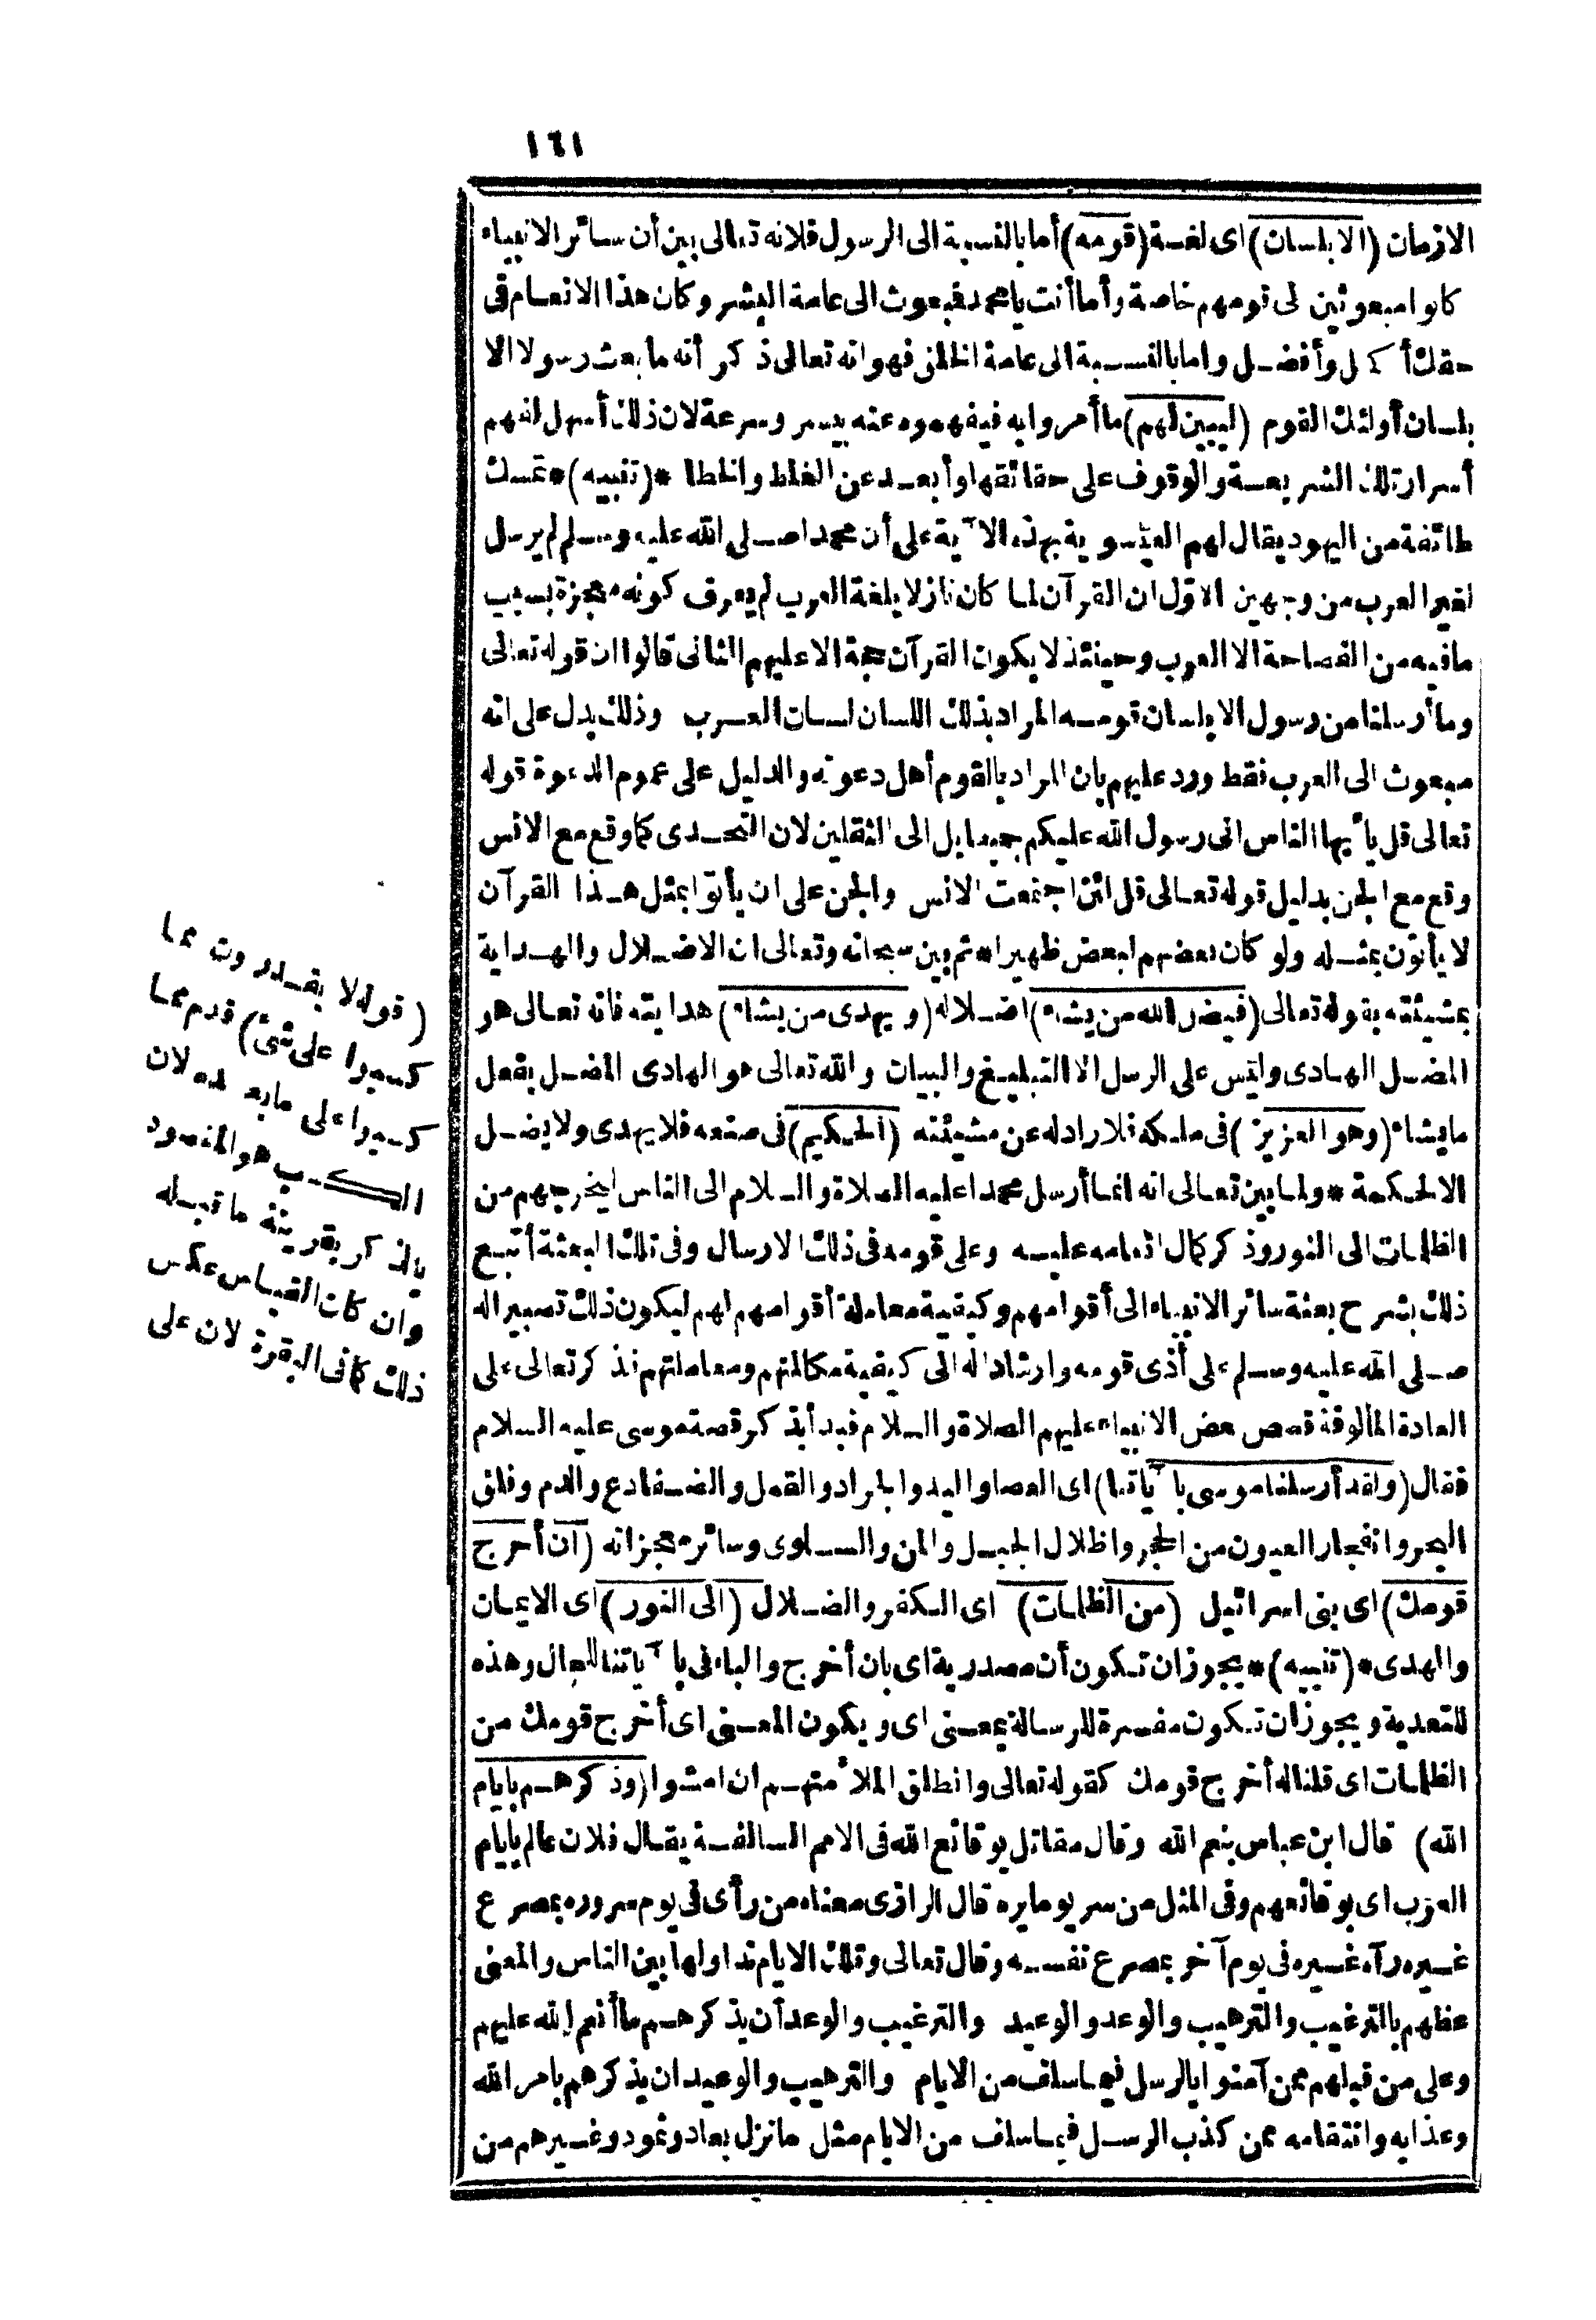 ١٦١
الازمان (الابلسان) اى لغـة (قومه) أما بالنسبة الى الرسول فلانه تعالى بين أن سائر الانبياء
كانوا مبعوثين الى قومهم خاصة وأما أنت يا محمد فبعوث الى عامة البشر وكان هذا الانعام فى
حقك أكمل وأفضل واما بالنسبة الى عامة الخلق فهو انه تعالى ذكر أنه ما بعث رسولا الا
بلسان أولئك القوم (ليبين لهم) ما أمروا به فيفهموه عنه بيسر وسرعة لان ذلك أسهل لفهم
أسرار تلك الشريعة والوقوف على حقائقها وأبعد عن الغلط والخطا *(تنبيه)* تمسك
طائفة من اليهود يقال لهم العيسوية بهذه الآية على أن محمدا صلى الله عليه وسلم لم يرسل
لغير العرب من وجهين الاوّل ان القرآن لما كان نازلا بلغة العرب لم يعرف كونه معجزة بسبب
ما فيه من الفصاحة الا العرب وحينئذ لا يكون القرآن حجة الا عليهم الثانى قالوا ان قوله تعالى
وما أرسلنا من رسول الا بلسان قومه المراد بذلك اللسان لسان العرب وذلك يدل على انه
مبعوث الى العرب فقط ورد عليهم بان المراد بالقوم أهل دعوته والدليل على عموم الدعوة قوله
تعالى قل يا أيها الناس انى رسول الله عليكم جميعا بل الى الثقلين لان التحدى كما وقع مع الانس
وقع مع الجن بدليل قوله تعالى قل لئن اجتمعت الانس والجن على ان يأتوا بمثل هذا القرآن
لا يأتون بمثله ولو كان بعضهم لبعض ظهيرا * ثم بين سبحانه وتعالى ان الاضلال والهداية
بمشيئته بقوله تعالى (فيضل الله من يشاء) اضلاله (ويهدى من يشاء) هدايته فانه تعالى هو
المضل الهادى وليس على الرسل الا التبليغ والبيان والله تعالى هو الهادى المضل يفعل
ما يشاء (وهو العزيز) فى ملكه فلا راد له عن مشيئته (الحكيم) فى صنعه فلا يهدى ولا يضل
الا لحكمة * ولما بين تعالى انه انما أرسل محمدا عليه الصلاة والسلام الى الناس ليخرجهم من
الظلمات الى النور وذكر كمال انعامه عليه وعلى قومه فى ذلك الارسال وفى تلك البعثة أتبع
ذلك بشرح بعثة سائر الانبياء الى أقوامهم وكيفية معاملة أقوامهم لهم ليكون ذلك تصبيرا له
صلى الله عليه وسلم على أذى قومه وارشادا له الى كيفية مكالمتهم ومعاملتهم فذكر تعالى على
العادة المألوفة قصص بعض الانبياء عليهم الصلاة والسلام فبدأ بذكر قصة موسى عليه السلام
فقال (ولقد أرسلنا موسى بآياتنا) اى العصا واليد والجراد والقمل والضفادع والدم وفلق
البحر وانفجار العيون من الحجر واظلال الجبل والمن والسلوى وسائر معجزاته (ان أخرج
قومك) اى بنى اسرائيل (من الظلمات) اى الكفر والضلال (الى النور) اى الايمان
والهدى *(تنبيه)* يجوز ان تكون أن مصدرية اى بان أخرج والباء فى بآياتنا للحال وهذه
للتعدية ويجوز ان تكون مفسرة للرسالة بمعنى اى ويكون المعنى اى أخرج قومك من
الظلمات اى قلنا له أخرج قومك كقوله تعالى وانطلق الملأ منهم ان امشوا (وذكرهم بايام
الله) قال ابن عباس بنعم الله وقال مقاتل بوقائع الله فى الامم السالفة يقال فلان عالم بايام
العرب اى بوقائعهم وفى المثل من سر يوما يره قال الرازى معناه من رأى فى يوم سروره بمصرع
غيره رآه غيره فى يوم آخر بمصرع نفسه وقال تعالى وتلك الايام نداولها بين الناس والمعنى
عظهم بالترغيب والترهيب والوعد والوعيد والترغيب والوعد أن يذكرهم ما أنعم الله عليهم
وعلى من قبلهم ممن آمنوا بالرسل فيما سلف من الايام والترهيب والوعيد ان يذكرهم بامر الله
وعذابه وانتقامه ممن كذب الرسل فيما سلف من الايام مثل ما نزل بعاد وثمود وغيرهم من
(قوله لا يقدرون مما
كسبوا على شئ) قدم مما
كسبوا على ما بعده لان
الكسب هو المقصود
بالذكر بقرينة ما قبله
وان كان القياس عكس
ذلك كما فى البقرة لان على